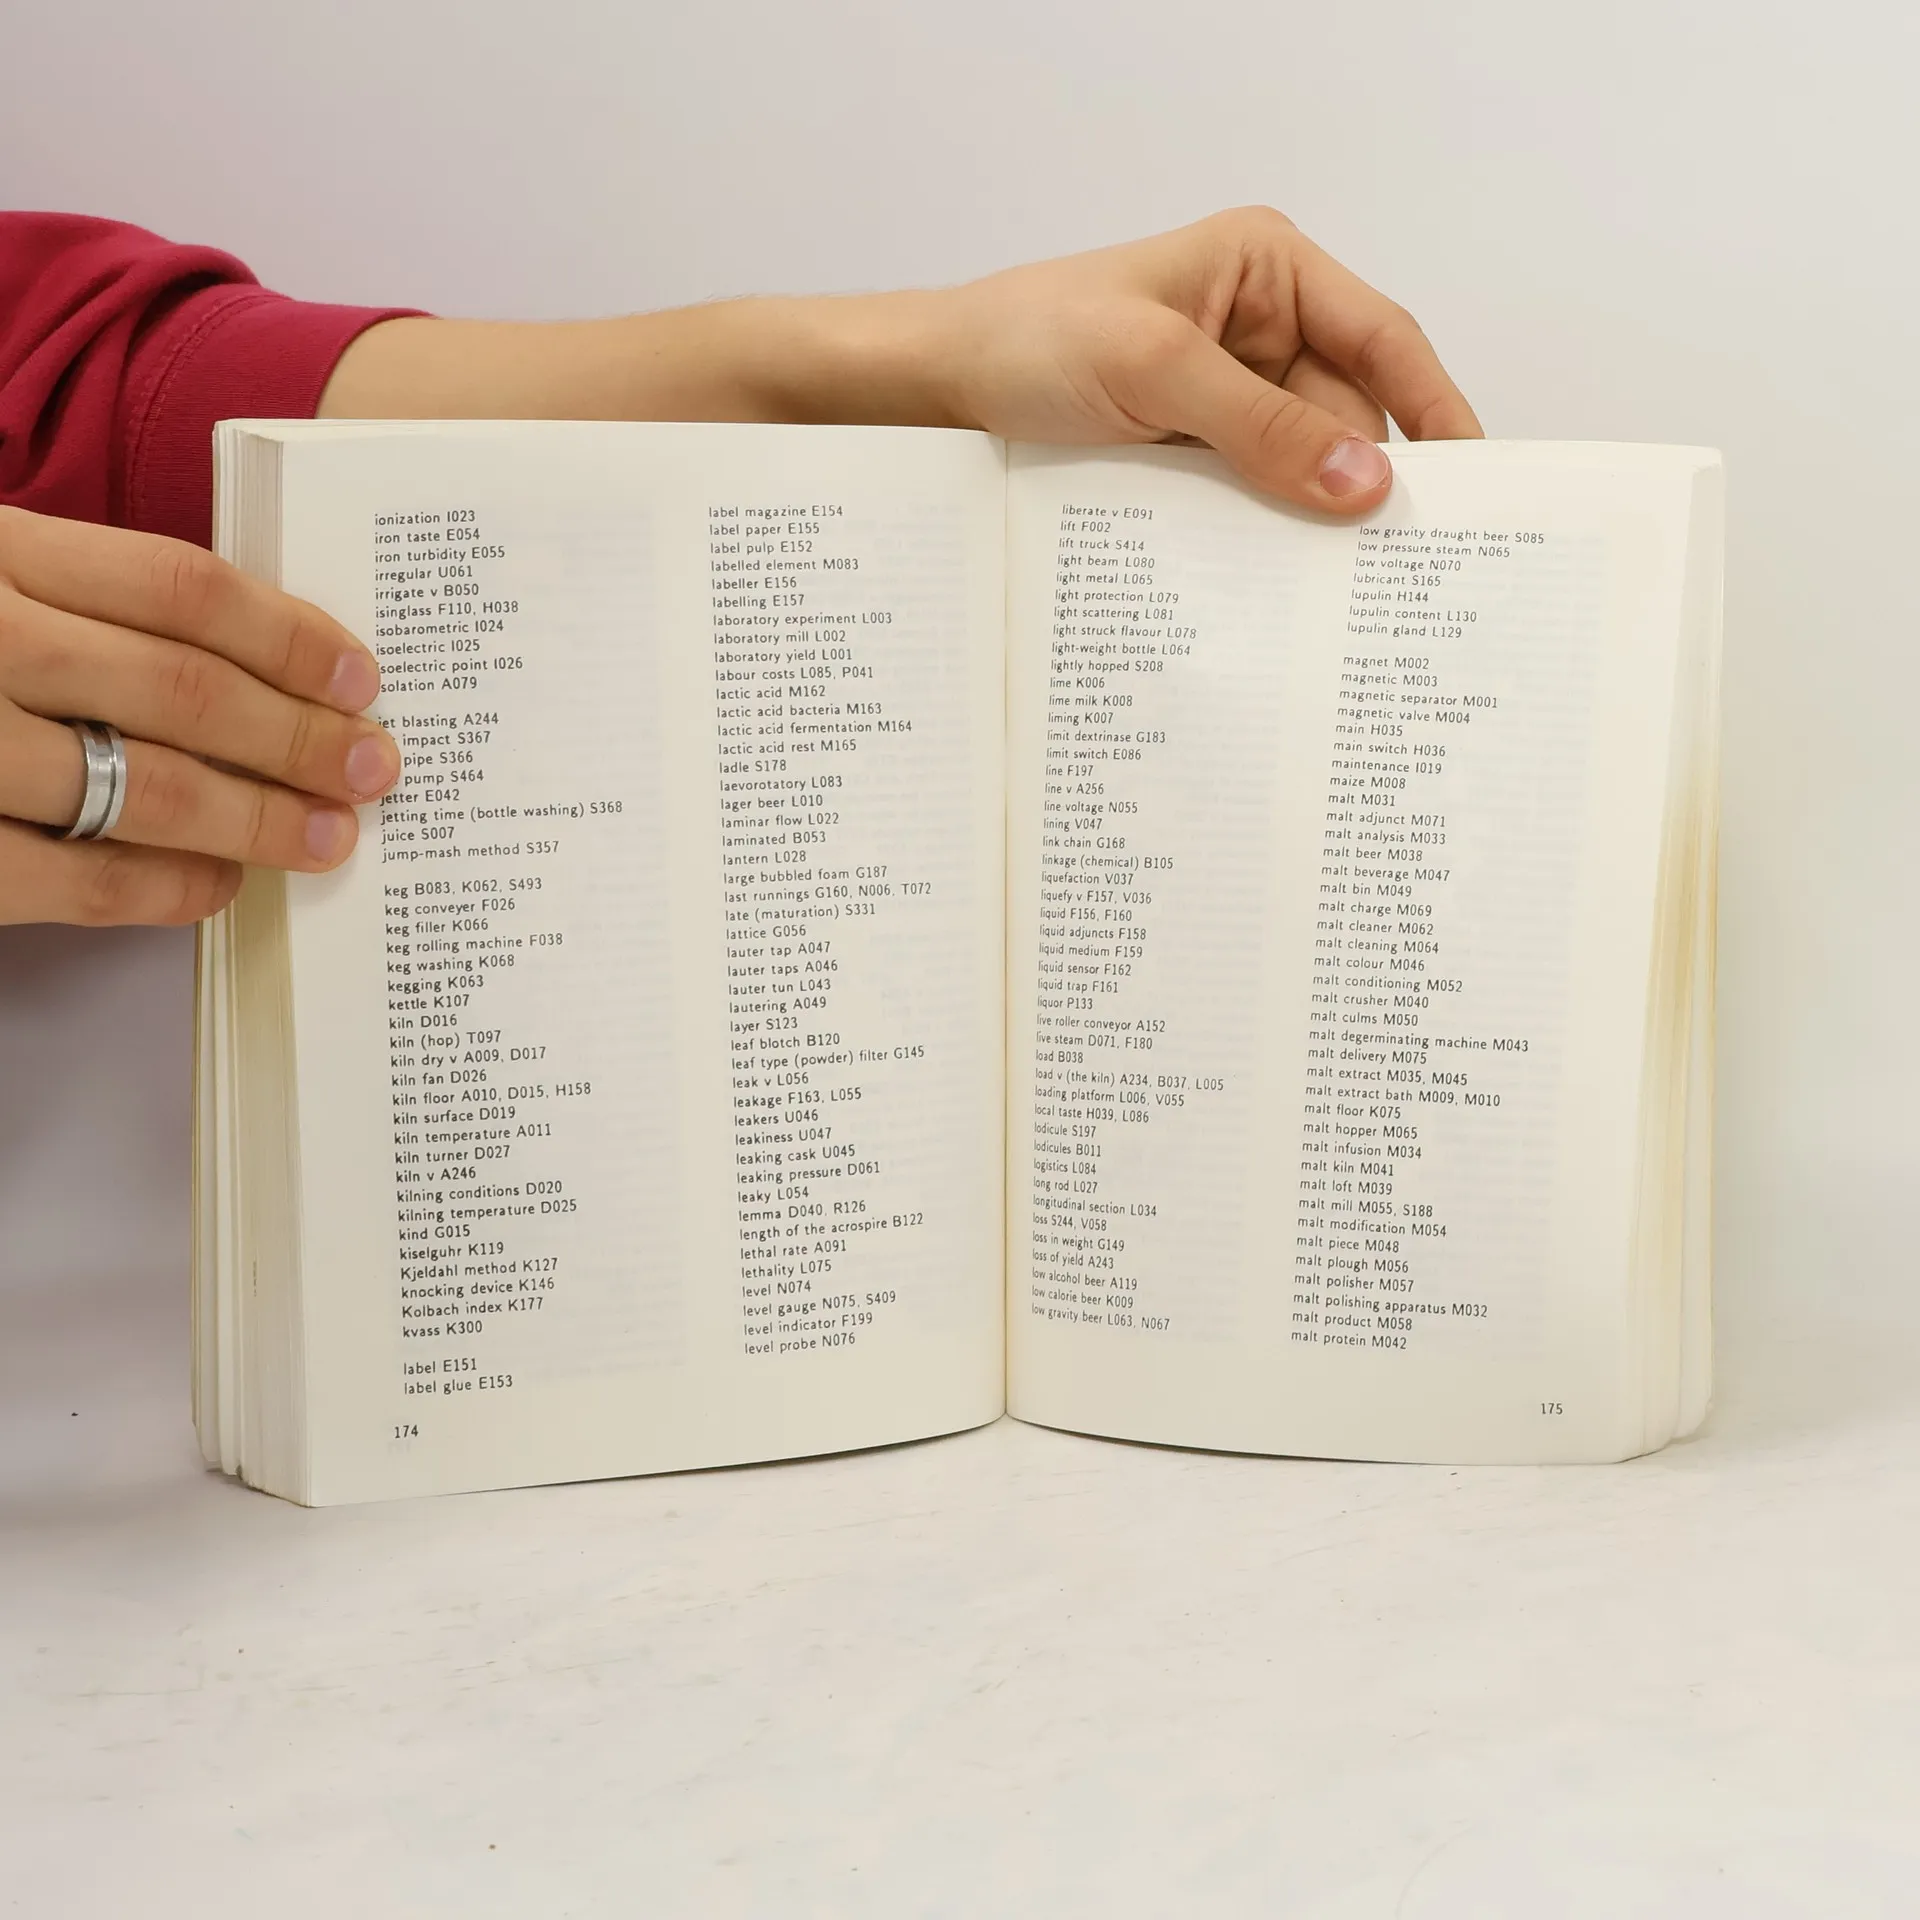 ionization I023
iron taste E054
iron turbidity E055
irregular U061
irrigate v B050
isinglass F110, H038
isobarometric I024
isoelectric I025
isoelectric point I026
isolation A079
jet blasting A244
impact S367
pipe S366
pump S464
jetter E042
jetting time (bottle washing) S368
juice S007
jump-mash method S357
keg B083, K062, S493
keg conveyer F026
keg filler K066
keg rolling machine F038
keg washing K068
kegging K063
kettle K107
kiln D016
kiln (hop) T097
kiln dry v A009, D017
kiln fan D026
kiln floor A010, D015, H158
kiln surface D019
kiln temperature A011
kiln turner D027
kiln v A246
kilning conditions D020
kilning temperature D025
kind G015
kiselguhr K119
Kjeldahl method K127
knocking device K146
Kolbach index K177
kvass K300
label E151
label glue E153
174
label magazine E154
label paper E155
label pulp E152
labelled element M083
labeller E156
labelling E157
laboratory experiment L003
laboratory mill L002
laboratory yield L001
labour costs L085, P041
lactic acid M162
lactic acid bacteria M163
lactic acid fermentation M164
lactic acid rest M165
ladle S178
laevorotatory L083
lager beer L010
laminar flow L022
laminated B053
lantern L028
large bubbled foam G187
last runnings G160, N006, T072
late (maturation) S331
lattice G056
lauter tap A047
lauter taps A046
lauter tun L043
lautering A049
layer S123
leaf blotch B120
leaf type (powder) filter G145
leak v L056
leakage F163, L055
leakers U046
leakiness U047
leaking cask U045
leaking pressure D061
leaky L054
lemma D040, R126
length of the acrospire B122
lethal rate A091
lethality L075
level N074
level gauge N075, S409
level indicator F199
level probe N076
liberate v E091
lift F002
lift truck S414
light beam L080
light metal L065
light protection L079
light scattering L081
light struck flavour L078
light-weight bottle L064
lightly hopped S208
lime K006
lime milk K008
liming K007
limit dextrinase G183
limit switch E086
line F197
line v A256
line voltage N055
lining V047
link chain G168
linkage (chemical) B105
liquefaction V037
liquefy v F157, V036
liquid F156, F160
liquid adjuncts F158
liquid medium F159
liquid sensor F162
liquid trap F161
liquor P133
live roller conveyor A152
live steam D071, F180
load B038
load v (the kiln) A234, B037, L005
loading platform L006, V055
local taste H039, L086
lodicule S197
lodicules B011
logistics L084
long rod L027
longitudinal section L034
loss S244, V058
loss in weight G149
loss of yield A243
low alcohol beer A119
low calorie beer K009
low gravity beer L063, N067
low gravity draught beer S085
low pressure steam N065
low voltage N070
lubricant S165
lupulin H144
lupulin content L130
lupulin gland L129
magnet M002
magnetic M003
magnetic separator M001
magnetic valve M004
main H035
main switch H036
maintenance I019
maize M008
malt M031
malt adjunct M071
malt analysis M033
malt beer M038
malt beverage M047
malt bin M049
malt charge M069
malt cleaner M062
malt cleaning M064
malt colour M046
malt conditioning M052
malt crusher M040
malt culms M050
malt degerminating machine M043
malt delivery M075
malt extract M035, M045
malt extract bath M009, M010
malt floor K075
malt hopper M065
malt infusion M034
malt kiln M041
malt loft M039
malt mill M055, S188
malt modification M054
malt piece M048
malt plough M056
malt polisher M057
malt polishing apparatus M032
malt product M058
malt protein M042
175